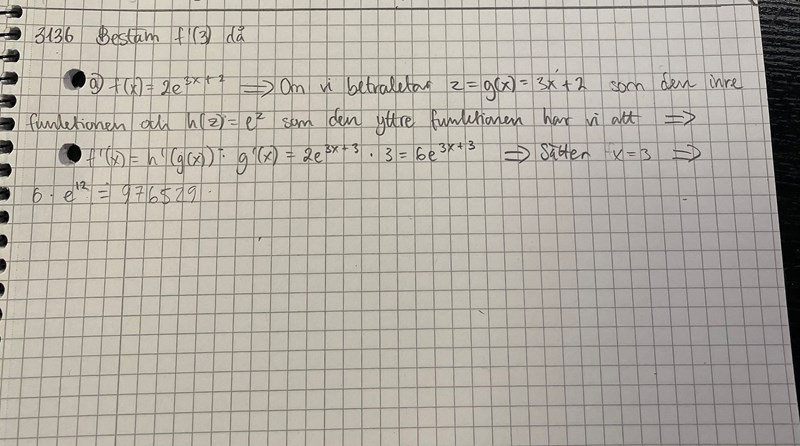 3136 Bestäm f'(3) då
a) f(x) = 2e^{3x+2} ⟹ Om vi betraktar z = g(x) = 3x + 2 som den inre
funktionen och h(z) = e^z som den yttre funktionen har vi att ⟹
f'(x) = h'(g(x)) · g'(x) = 2e^{3x+3} · 3 = 6e^{3x+3} ⟹ Sätter x=3 ⟹
6 · e^{12} = 976529.